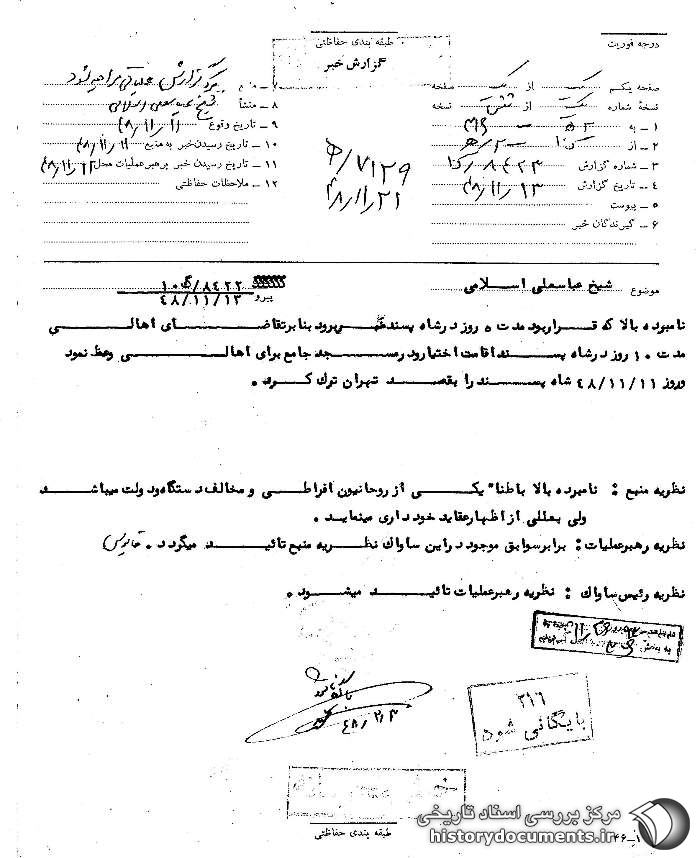 درجه فوریت
طبقه بندی حفاظتی
گزارش خبر
صفحه یکم یک از یک صفحه
نسخهٔ شماره یک از شش نسخه
۱ ـ به
۲ ـ از
۳ ـ شماره گزارش ۸۴۲۳
۴ ـ تاریخ گزارش ۴۸/۱۱/۱۳
۵ ـ پیوست
۶ ـ گیرندگان خبر
۷ ـ منبع
۸ ـ منشأ شیخ عباسعلی اسلامی
۹ ـ تاریخ وقوع ۴۸/۱۱/۱۱
۱۰ ـ تاریخ رسیدن خبر به منبع ۴۸/۱۱/۱۱
۱۱ ـ تاریخ رسیدن خبر برهبر عملیات محل ۴۸/۱۱/۱۲
۱۲ ـ ملاحظات حفاظتی
ﻫ/۷۱۲۹
۴۸/۱۱/۲۱
موضوع شیخ عباسعلی اسلامی
پیرو ۸۴۲۲/ﻫ۱۰
۴۸/۱۱/۱۳
نامبرده بالا که قرار بود مدت ۵ روز در شاه پسند منبر برود بنا بر تقاضای اهالی
مدت ۱۰ روز در شاه پسند اقامت اختیار و در مسجد جامع برای اهالی وعظ نمود
و روز ۴۸/۱۱/۱۱ شاه پسند را بقصد تهران ترک کرد .
نظریه منبع : نامبرده بالا باطناً یکی از روحانیون افراطی و مخالف دستگاه و دولت میباشد
ولی بعللی از اظهار عقاید خود داری مینماید .
نظریه رهبر عملیات : برابر سوابق موجود در این ساواک نظریه منبع تائید میگردد .
نظریه رئیس ساواک : نظریه رهبر عملیات تائید میشود .
۳۱۶
بایگانی شود
طبقه بندی حفاظتی
مرکز بررسی اسناد تاریخی
historydocuments.ir